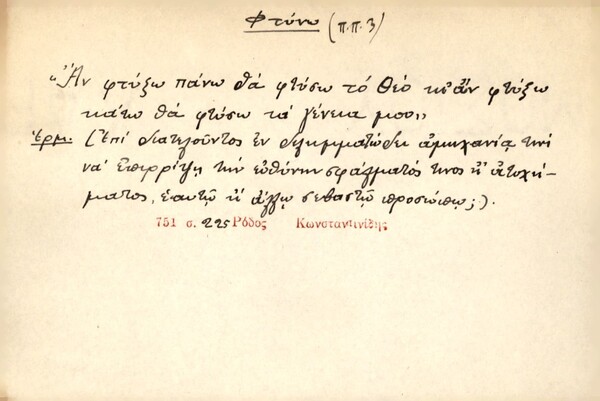 Φτύνω (π.π. 3)
"Ἂν φτύξω πάνω θά φτύσω τό Θεό κι ἄν φτύξω
κάτω θά φτύσω τά γένεια μου„
Ἑρμ. (Ἐπί διατελοῦντος ἐν διλημματώδει ἀμηχανίᾳ τινί
νά ἐπιρρίψῃ τήν εὐθύνην σφάλματός τινος ἤ ἀτοχή-
ματος, ἑαυτῷ ἤ ἄλλῳ σεβαστῷ προσώπῳ;).
751 σ. 225 Ρόδος Κωνσταντινίδης